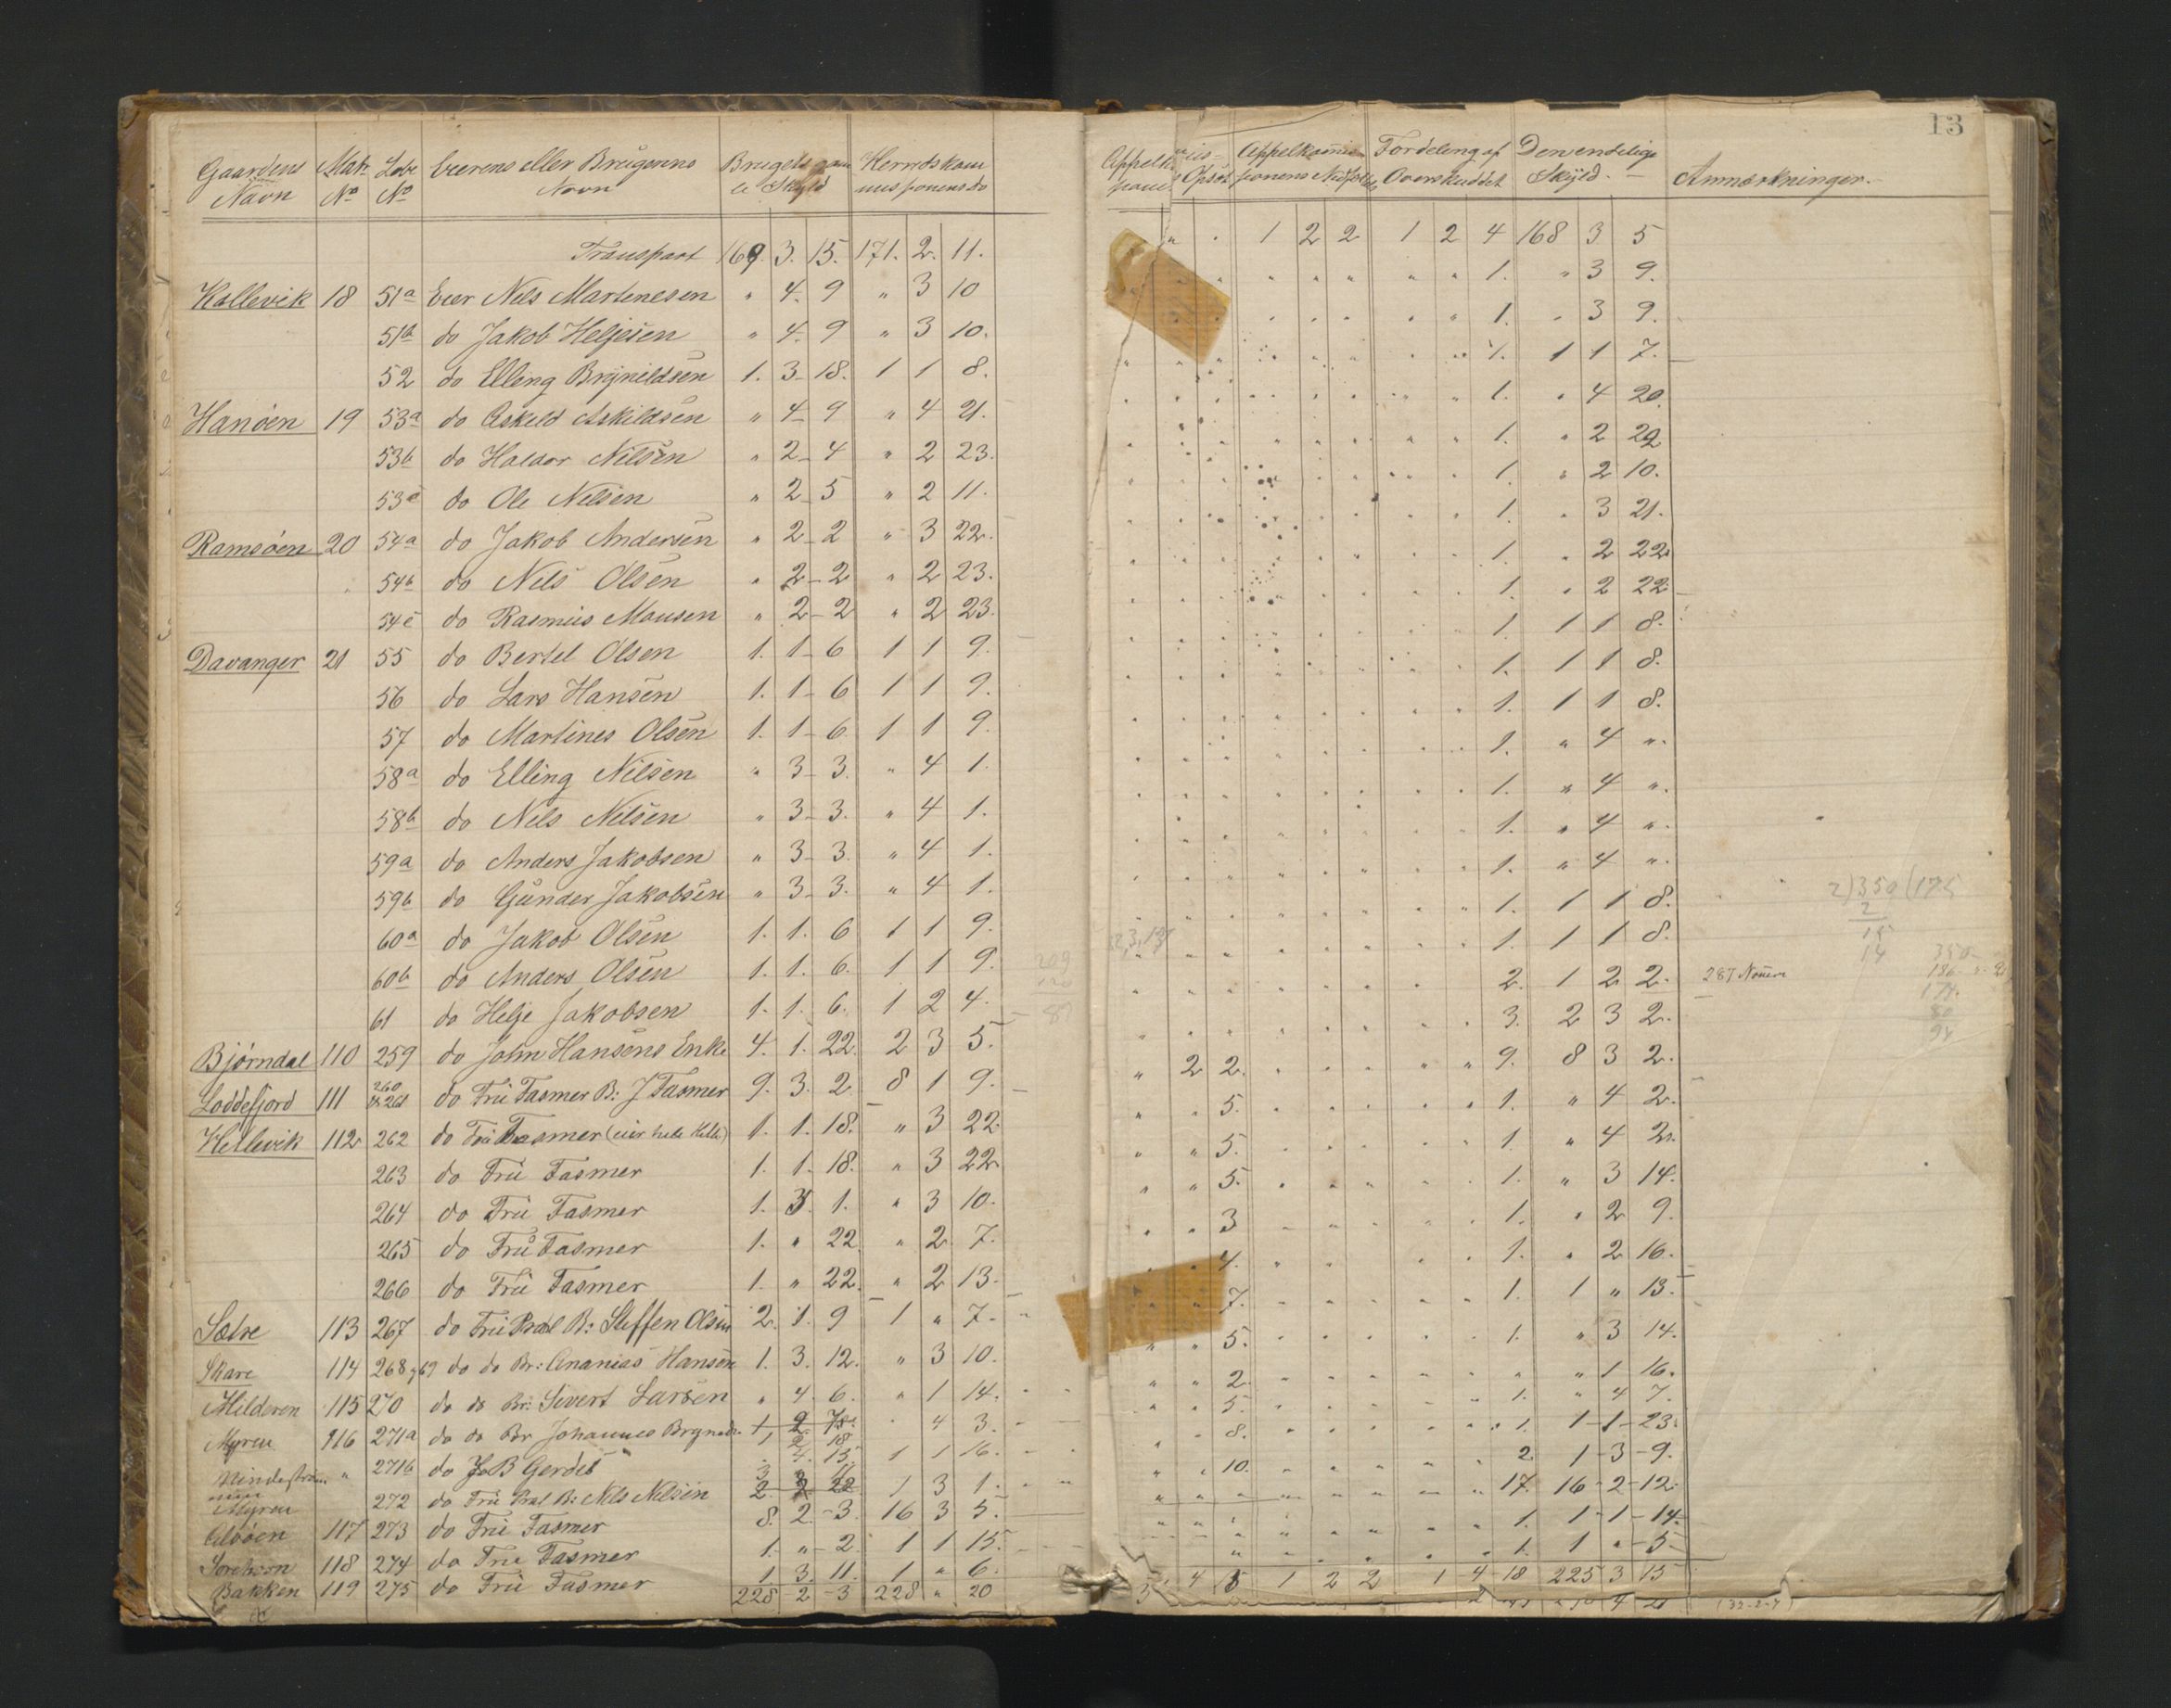 13
Gaardens Navn | Matr. No | Løbe No | Eierens eller Brugerens Navn | Brugets gamle Skyld | Herredskommissionens do
Transport 169. 3. 15. 171. 2. 11.
Hallevik 18 51a Eier Nils Martinesen " 4. 9 " 3 10
51b do Jakob Heljesen " 4. 9 " 3 10.
52 do Elling Brynildsen 1. 3- 18. 1 1 8.
Hanöen 19 53a do Askild Askildsen " 4- 9 " 4 21.
53b do Haldor Nilsen " 2- 4 " 2 23.
53c do Ole Nilsen " 2- 5 " 2 11.
Ramsöen 20 54a do Jakob Andersen " 2- 2 " 3 22.
54b do Nils Olsen " 2- 2 " 2 23.
54c do Rasmus Monsen " 2- 2 " 2 23.
Davanger 21 55 do Bertel Olsen 1. 1- 6 1 1 9.
56 do Lars Hansen 1. 1- 6 1 1 9.
57 do Martines Olsen 1. 1- 6 1 1 9.
58a do Elling Nilsen " 3- 3. " 4 1.
58b do Nils Nilsen " 3- 3. " 4 1.
59a do Anders Jakobsen " 3- 3. " 4 1.
59b do Gunder Jakobsen " 3- 3. " 4 1.
60a do Jakob Olsen 1. 1. 6 1 1 9.
60b do Anders Olsen 1. 1. 6. 1 1 9.
61 do Helje Jakobsen 1. 1. 6. 1 2 4.
Bjørndal 110 259 do John Hansens Enke 4. 1. 22. 2 3 5.
Loddefjord 111 260 & 261 do Frü Fasmer B: J Fasmer 9. 3. 2. 8 1 9.
Hetlevik 112 262 do Frü Fasmer 1. 1. 18. " 3 22
263 do Frü Fasmer 1. 1. 18. " 3 22.
264 do Frü Fasmer 1. 3. 1. " 3 10.
265 do Frü Fasmer 1. " 22 " 2 7.
266 do Frü Fasmer 1. " 22. " 2 13.
Sætre 113 267 do Frü Prahl B: Steffen Olsen 2. 1. 9 1 " 7.
Skare 114 268 & 69 do do Br: Ananias Hansen 1. 3. 12. " 3 10.
Hilderen 115 270 do do Br: Sivert Larsen " 4. 6. " 1 14.
Myren 116 271a do do Br Johannes 1 2 18 " 4 3.
" 271b do J B Gerdts 4. 15. 1 1 16.
Myren 272 do Frü Pral B: Nils Nilsen 2. 2 22 1 3 1.
Alvöen 117 273 do Frü Fasmer 8. 2 -3. 16 3 5.
118 274 do Frü Fasmer 1. " - 2. 1 1 15.
Bakken 119 275 do Frü Fasmer 1. 3. 11. 1 " 6.
228 2 -3 228 " 20
Appelkommissionens Nedsættelse | Fordeling af Overskuddet | Den endelige Skyld. | Anmærkninger.
" . 1 2 2 1 2 4 168 3 5
1. " 3 9.
1. " 3 9.
1. 1 1 7.
1. " 4 20.
1. " 2 22
1. " 2 10.
1. " 3 21.
1. " 2 22
1. " 2 22
1. 1 1 8.
1. 1 1 8.
1. 1 1 8.
1. " 4 ".
1. " 4 ".
1. " 4 ".
1. " 4 ".
1. 1 1 8.
1. 1 1 8.
2. 1 2 2. 287 Numere
3. 2 3 2.
" 2 2. 9. 8 3 2.
" " 5. 1. " 4 2.
" " 5. 1 " 4 2.
" " 5. 1. " 3 14.
" " 3 1. " 2 9.
4. 1. " 2 16.
7. 1. 1 " 13.
" " 5. 1. " 3 14.
" " 2. " " 1 16.
" " 5. 1. " 4 7.
" " 8. 1. 1-1-23.
" " 10. 2 1-3-9.
17. 16-2-12.
1. 1-1-14.
1. 1 "-5.
4 5 1 2 2 1 4 18 225 3 15
(32-2-7)
2)350(175